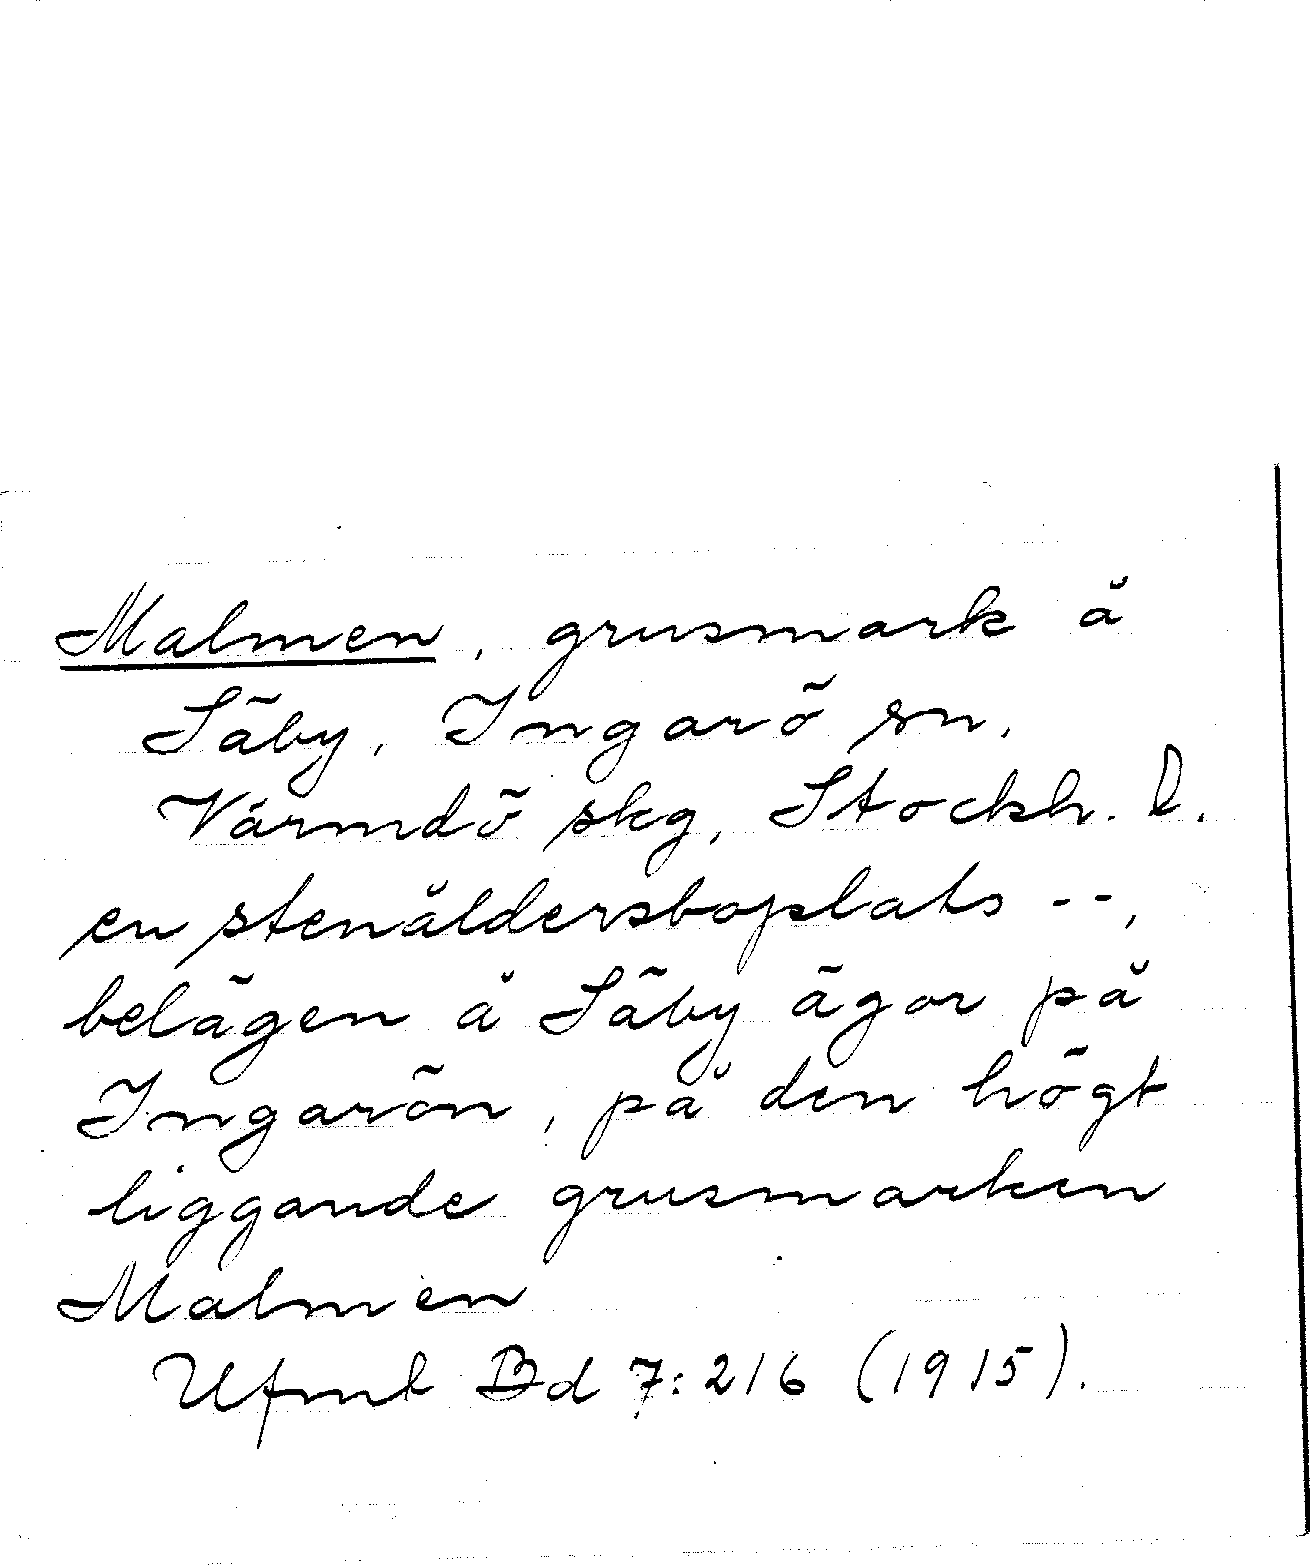 Malmen, grusmark å
Säby, Ingarö sn,
Värmdö skg, Stockh. l.
en stenåldersboplats --,
belägen å Säby ägor på
Ingarön, på den högt
liggande grusmarken
Malmen
Ufmt Bd 7:216 (1915).